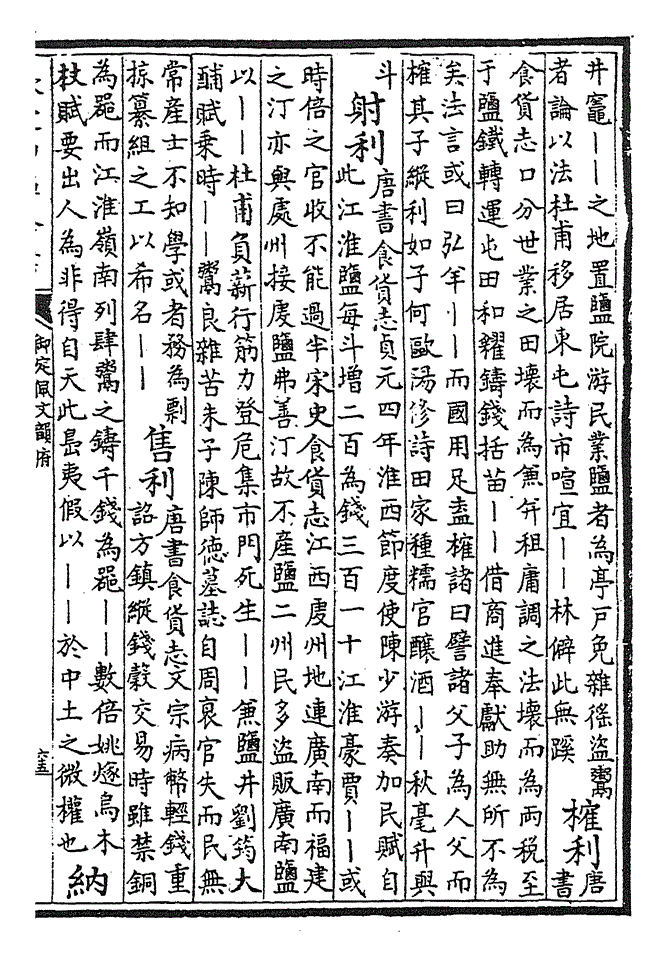 井竈——之地置鹽院游民業鹽者為亭戶免雜徭盜鬻
者論以法杜甫移居東屯詩市喧宜——林僻此無蹊
榷利
唐
書
食貨志口分世業之田壞而為兼并租庸調之法壞而為兩稅至
于鹽鐵轉運屯田和糴鑄錢括苗——借商進奉獻助無所不為
矣法言或曰弘羊——而國用足盍榷諸曰譬諸父子為人父而
榷其子縱利如子何歐陽修詩田家種糯官釀酒——秋毫升與
斗
射利
唐書食貨志貞元四年淮西節度使陳少游奏加民賦自
此江淮鹽每斗增二百為錢三百一十江淮豪賈——或
時倍之官收不能過半宋史食貨志江西虔州地連廣南而福建
之汀亦與處州接虔鹽弗善汀故不產鹽二州民多盜販廣南鹽
以——杜甫負薪行筋力登危集市門死生——兼鹽井劉筠大
酺賦乘時——鬻良雜苦朱子陳師德墓誌自周衰官失而民無
常產士不知學或者務為剽
掠纂組之工以希名——
售利
唐書食貨志文宗病幣輕錢重
詔方鎮縱錢穀交易時雖禁銅
為器而江淮嶺南列肆鬻之鑄千錢為器——數倍姚燧烏木
杖賦要出人為非得自天此島夷假以——於中土之微權也
納
御定佩文韻府
六五